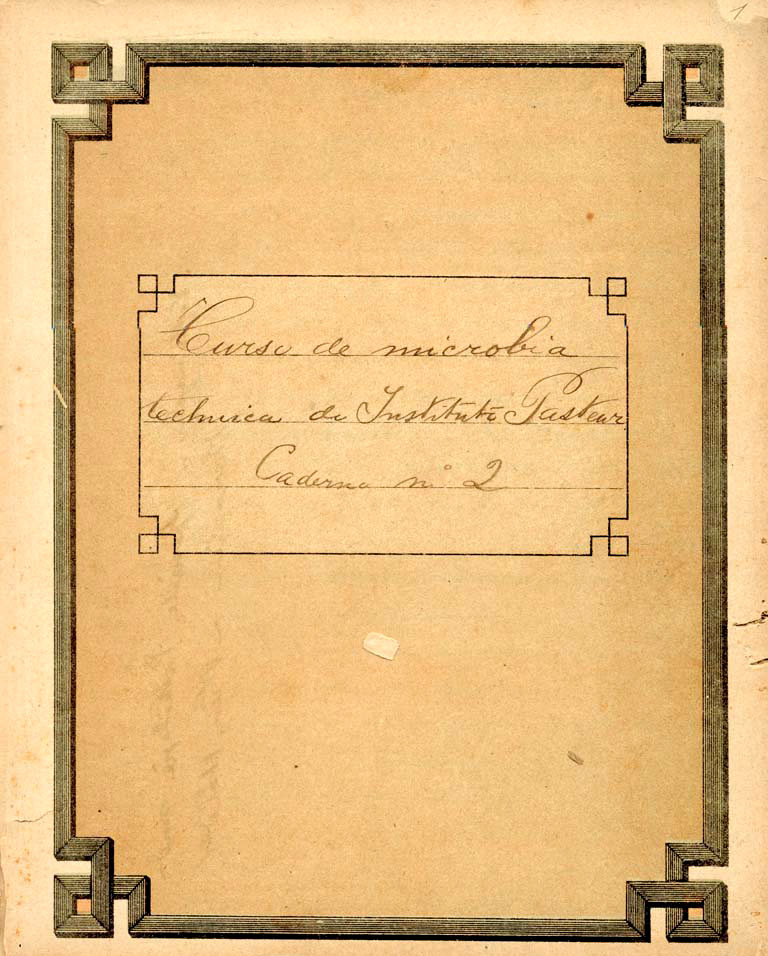 1
Curso de microbia
technica do Instituto Pasteur
Caderno nº 2